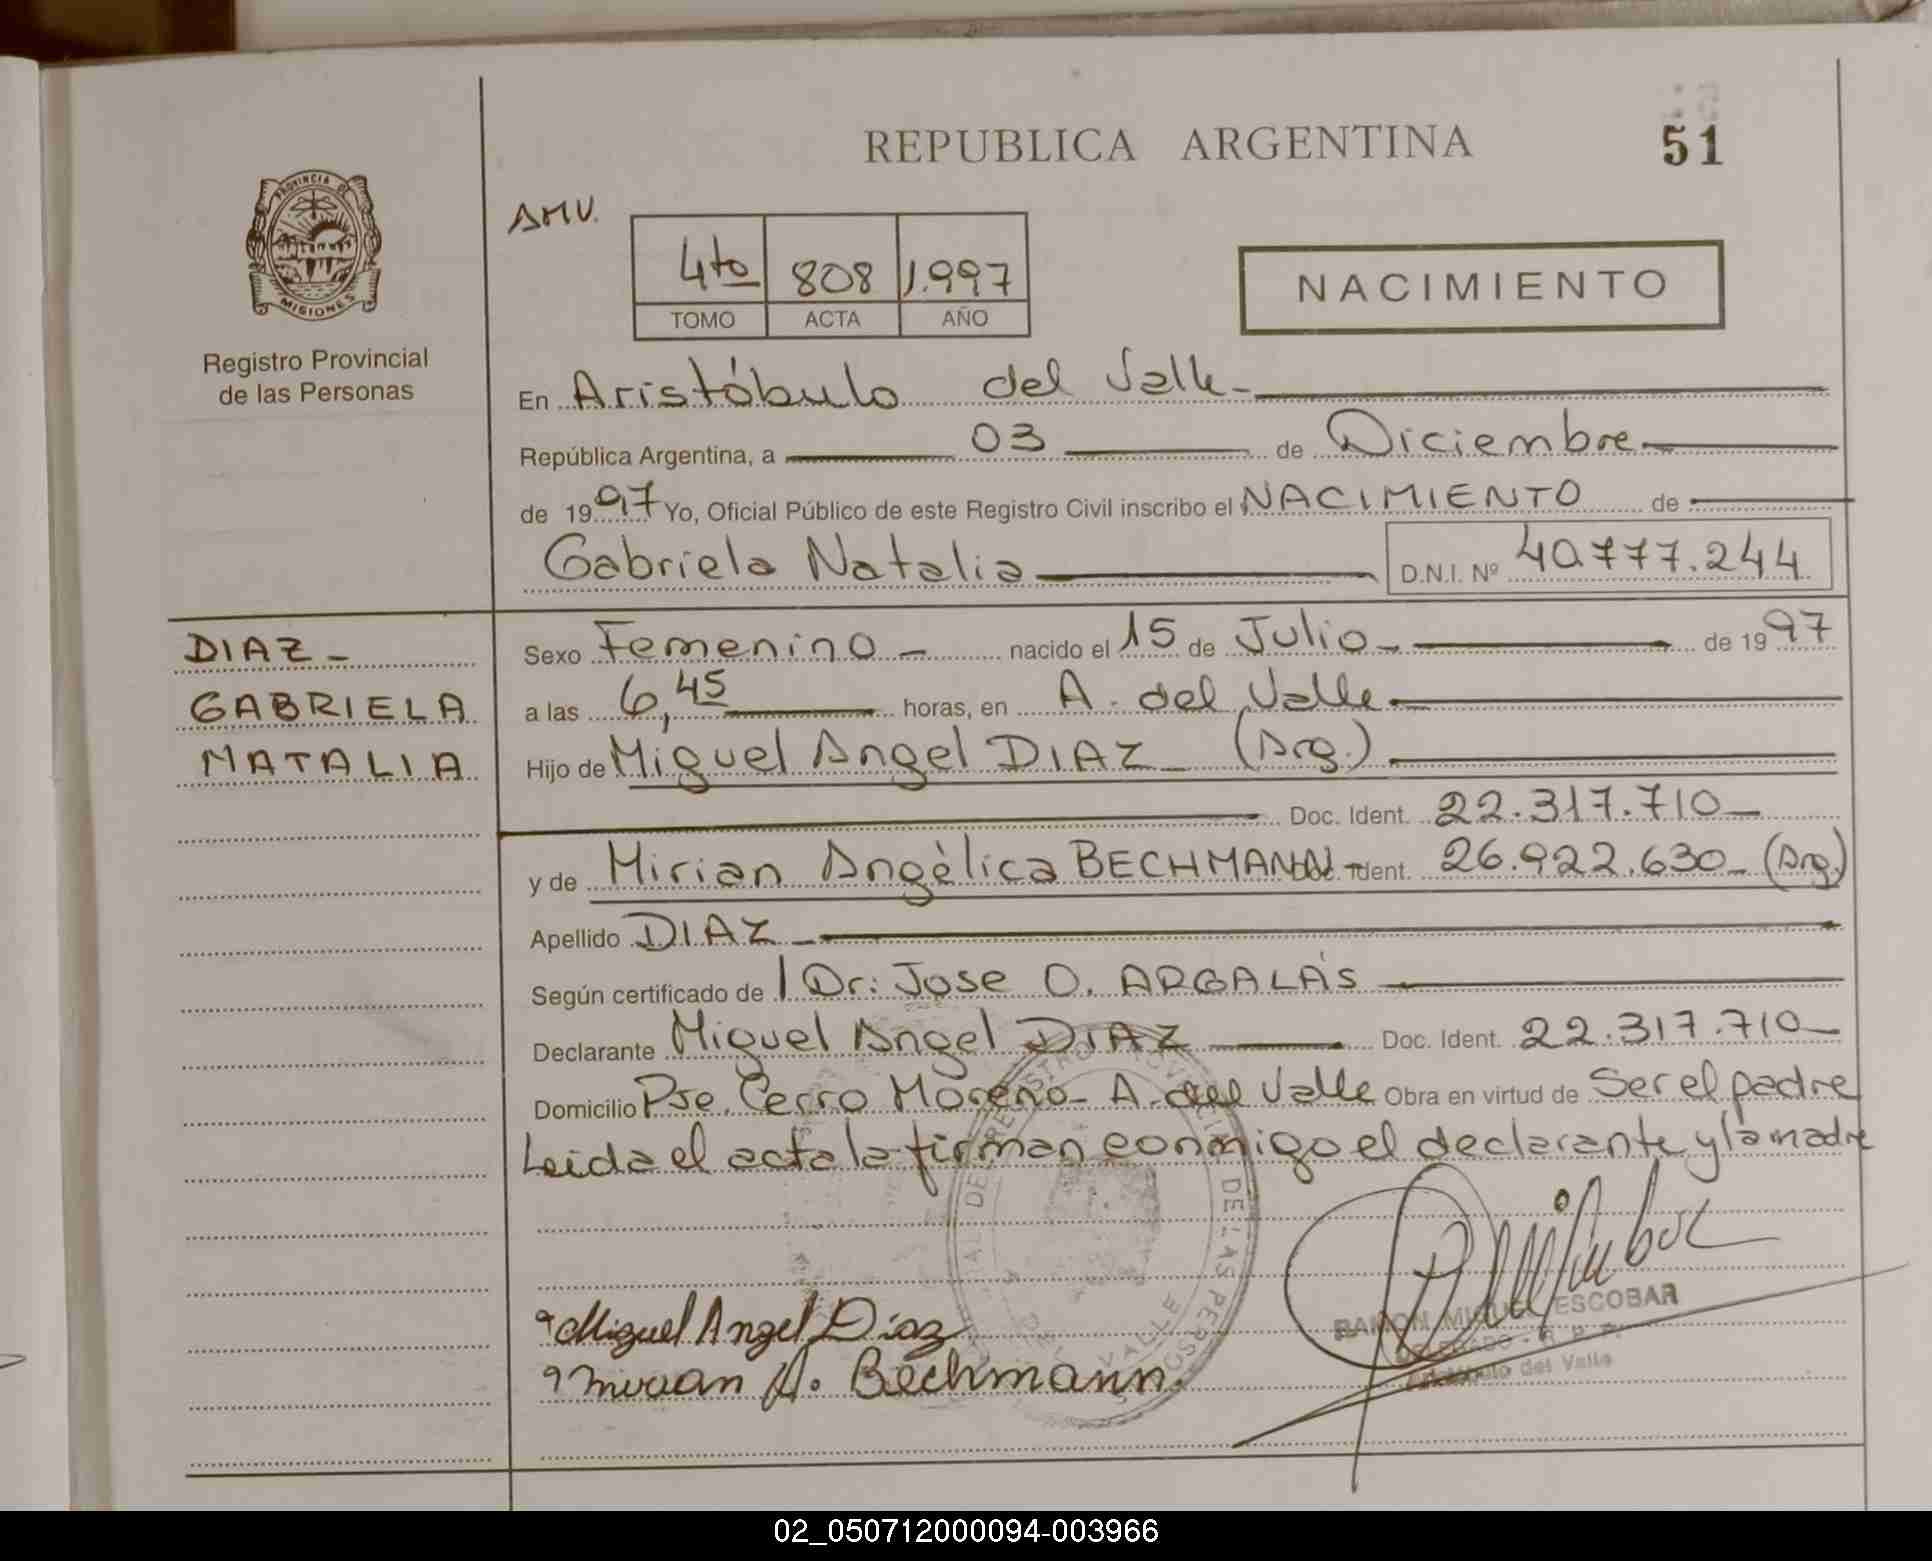 REPUBLICA ARGENTINA
51
PROVINCIA DE
MISIONES
Registro Provincial
de las Personas
AMV.
4to 808 1.997
TOMO ACTA AÑO
NACIMIENTO
En Aristóbulo del Valle-
República Argentina, a 03 de Diciembre
de 1997 Yo, Oficial Público de este Registro Civil inscribo el NACIMIENTO de
Gabriela Natalia D.N.I. Nº 40.777.244
DIAZ -
GABRIELA
NATALIA
Sexo Femenino - nacido el 15 de Julio - de 1997
a las 6,45 horas, en A. del Valle
Hijo de Miguel Angel DIAZ - (Arg.)
Doc. Ident. 22.317.710-
y de Mirian Angèlica BECHMANN - Doc. Ident. 26.922.630- (Arg.)
Apellido DIAZ -
Según certificado de Dr: Jose O. ARGALÁS
Declarante Miguel Angel DIAZ Doc. Ident. 22.317.710-
Domicilio Pje. Cerro Moreno- A. del Valle Obra en virtud de Ser el padre
Leida el acta la firman conmigo el declarante y la madre
DE LAS PERSONAS
VALLE
Miguel Angel Díaz
Mirian A. Bechmann.
RAMON MIGUEL ESCOBAR
DELEGADO - R. P. P.
Aristóbulo del Valle
02_050712000094-003966